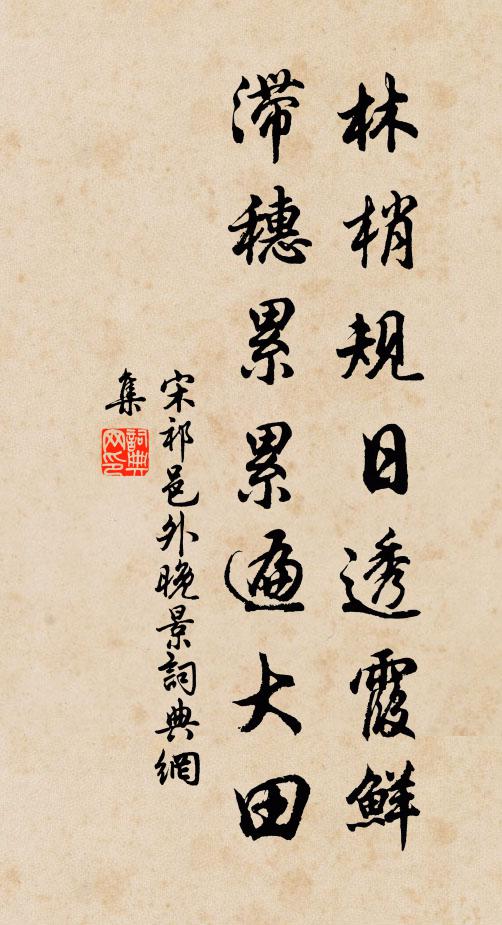 林梢規日透霞鮮
滯穗累累遍大田
宋祁邑外晚景詞典網
集
詞典
网印